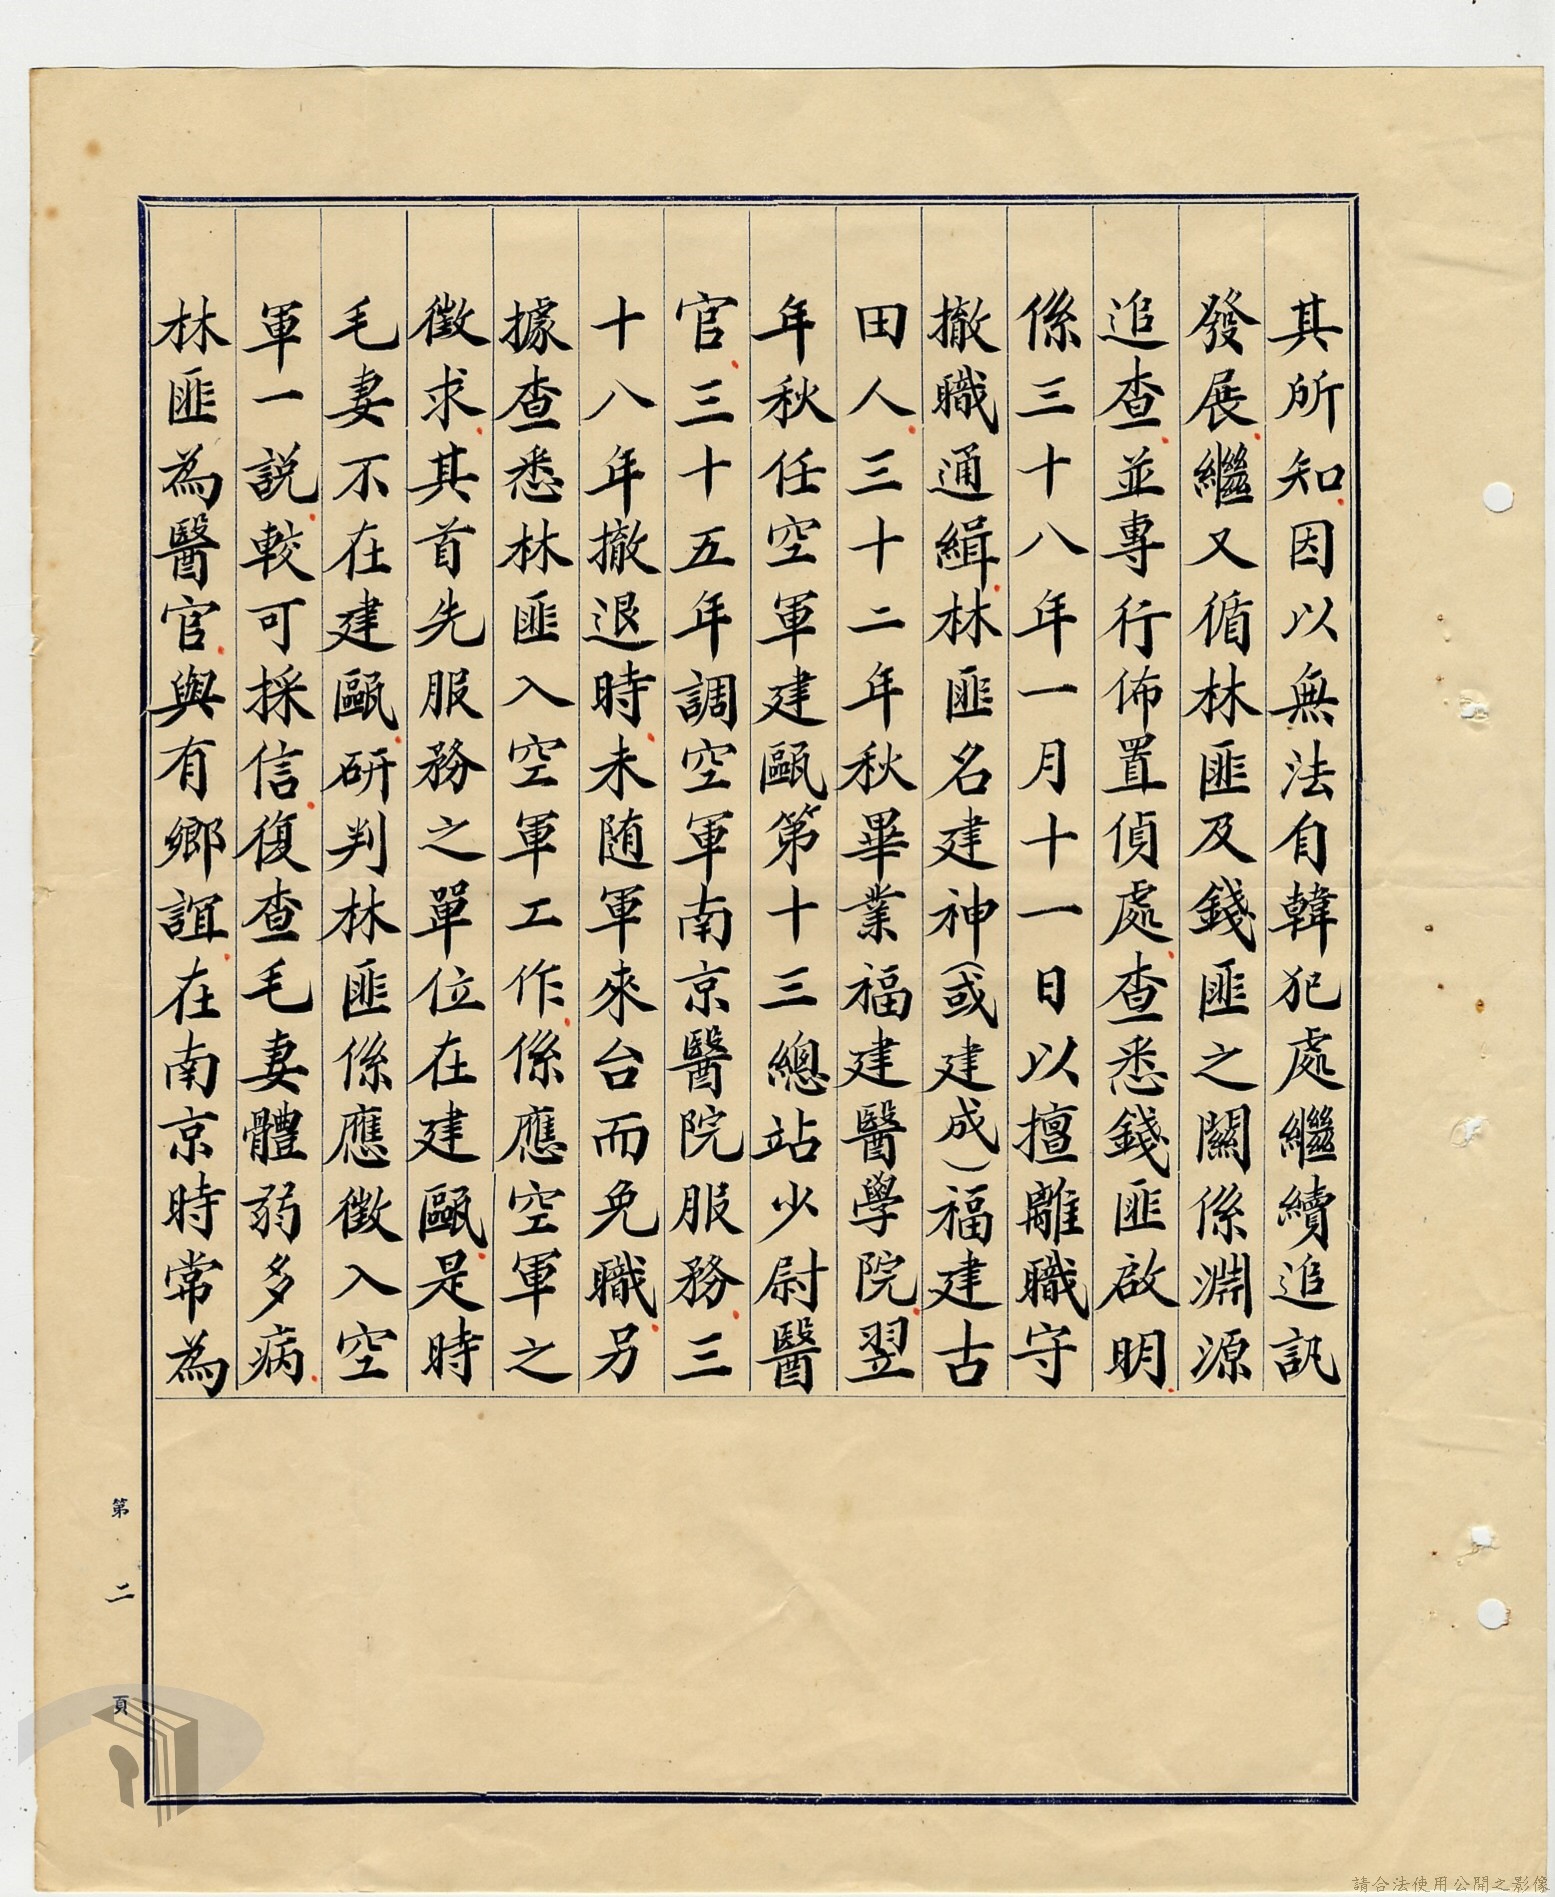 其所知因以無法自韓犯處繼續追訊
發展繼又循林匪及錢匪之關係淵源
追查並專行佈置偵處查悉錢匪啟明
係三十八年一月十一日以擅離職守
撤職通緝林匪名建神(或建成)福建古
田人三十二年秋畢業福建醫學院翌
年秋任空軍建甌第十三總站少尉醫
官三十五年調空軍南京醫院服務三
十八年撤退時未随軍來台而免職另
據查悉林匪入空軍工作係應空軍之
徵求其首先服務之單位在建甌是時
毛妻不在建甌研判林匪係應徵入空
軍一説較可採信復查毛妻體弱多病
林匪為醫官與有鄉誼在南京時常為
第二頁
請合法使用公開之影像